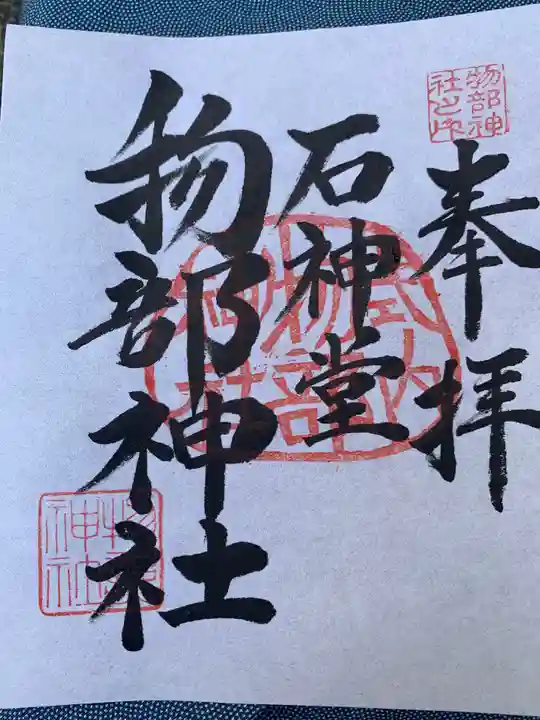 奉拝
石神堂
物部神社
物部神社之印
式内物部神社
物部神社